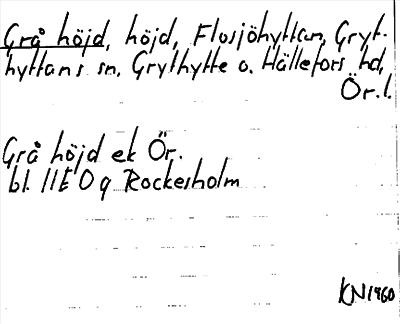 Grå höjd, höjd, Flosjöhyttan, Gryt-
hyttans sn, Grythytte o. Hällefors hd,
Ör. l.
Grå höjd ek Ör.
bl. 11E 0g Rockesholm
KN 1960